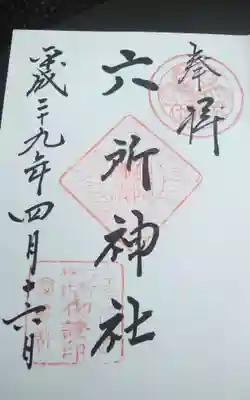 奉拝
六所神社
平成二十九年四月十六日